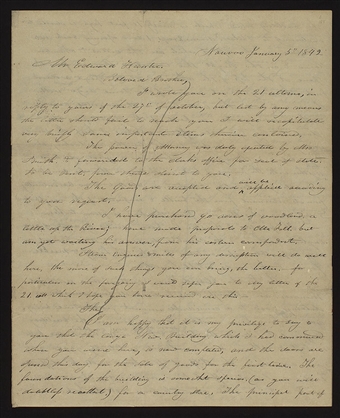 Nauvoo January 5th 1842.
Mr. Edward Hunter,
Beloved Brother,
I wrote you on the 21 ultimo, in
reply to yours of the 27th of October, but lest by any means
the letter should fail to reach you I will recapitulate
some important items therein contained.
The power of Attorney was duly executed by Mrs
Smith & forwarded to the
The Goods are and will be applied according
to your request.
I have purchased you woodland a
little up the River; have made proposals to Mr. Gill. but
am yet waiting his answer, from his eastern correspondent.
Steam Engine & mills of any description will do well
here, the more of such things you can bring, the better. for
particulars in the I would refer you to my letter of the
21 ult which I hope you have received ere this.
I am happy that it is my privilege to say to
you that the large New Building which I had commenced
when you were here, is now completed, and the doors are
opened this day for the sale of goods for the first time. The
foundation of the building is somewhat spacious, (as you will
doubtless recollect,) for a country store. The principal part of